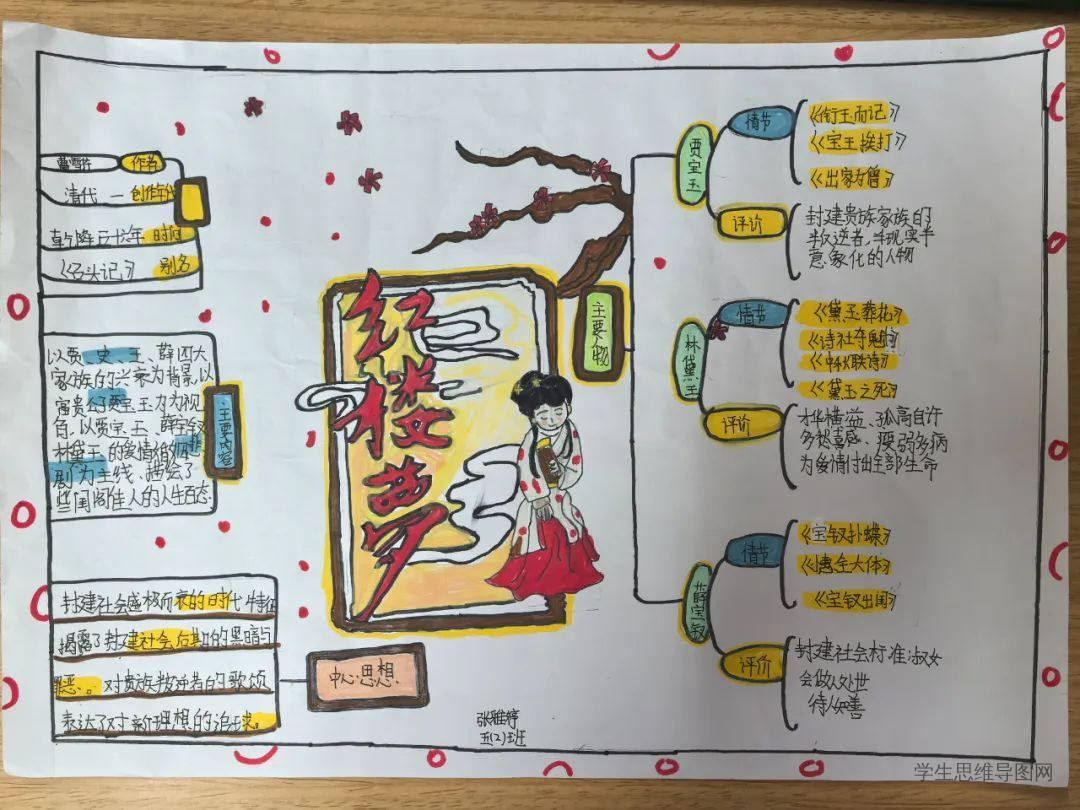 红楼梦
曹雪芹 作者
清代 — 创作年代
时间
《石头记》 别名
主要内容
以贾、史、王、薛四大
家族的兴衰为背景,以
富贵公子贾宝玉为视
角,以贾宝玉、薛宝钗
林黛玉的爱情婚姻悲
剧为主线,描绘了
些闺阁佳人的人生百态
中心思想
封建社会盛极而衰的时代特征
揭露了封建社会后期的黑暗与
罪恶。对贵族叛逆者的歌颂
表达了对新理想的追求。
主要人物
贾宝玉
情节
《衔玉而记》
《宝玉挨打》
《出家为僧》
评价
封建贵族家族的
叛逆者,半现实半
意象化的人物
林黛玉
情节
《黛玉葬花》
《诗社夺魁》
《中秋联诗》
《黛玉之死》
评价
才华横溢、孤高自许
多愁善感、瘦弱多病
为爱情付出全部生命
薛宝钗
情节
《宝钗扑蝶》
《宝钗出闺》
评价
封建社会标准淑女
会做人处世
待人和善
张雅婷
五(2)班
学生思维导图网